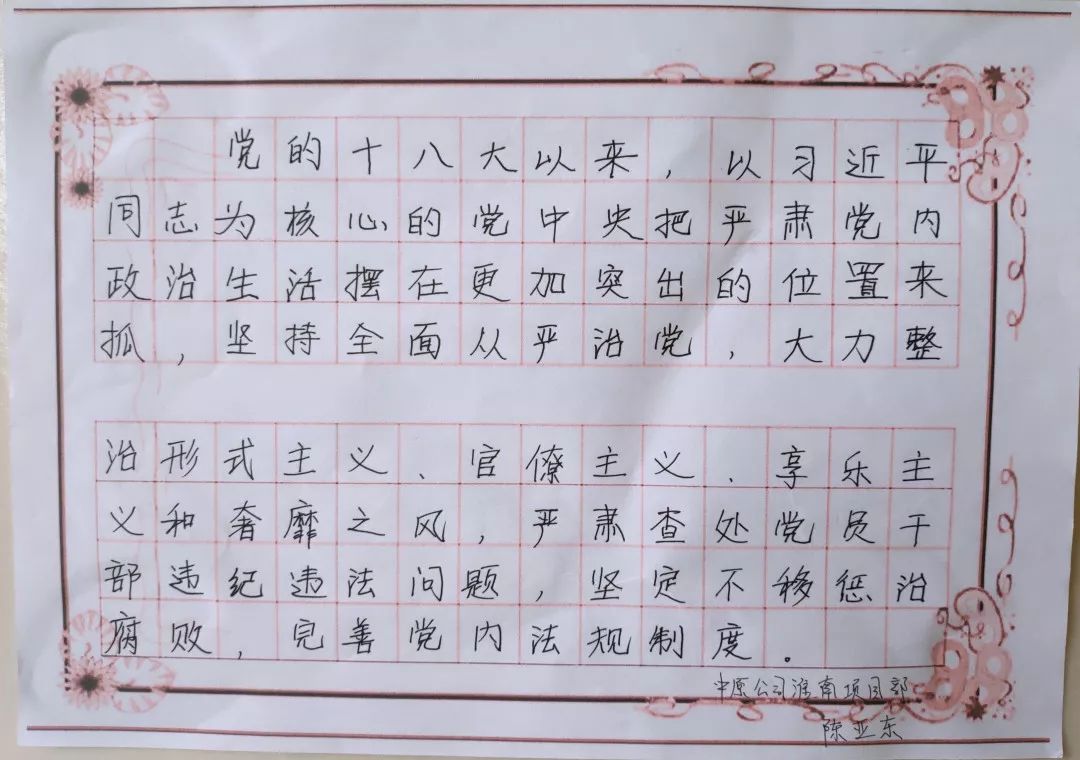 党的十八大以来,以习近平
同志为核心的党中央把严肃党内
政治生活摆在更加突出的位置来
抓,坚持全面从严治党,大力整
治形式主义、官僚主义、享乐主
义和奢靡之风,严肃查处党员干
部违纪违法问题,坚定不移惩治
腐败,完善党内法规制度。
中原公司淮南项目部
陈亚东